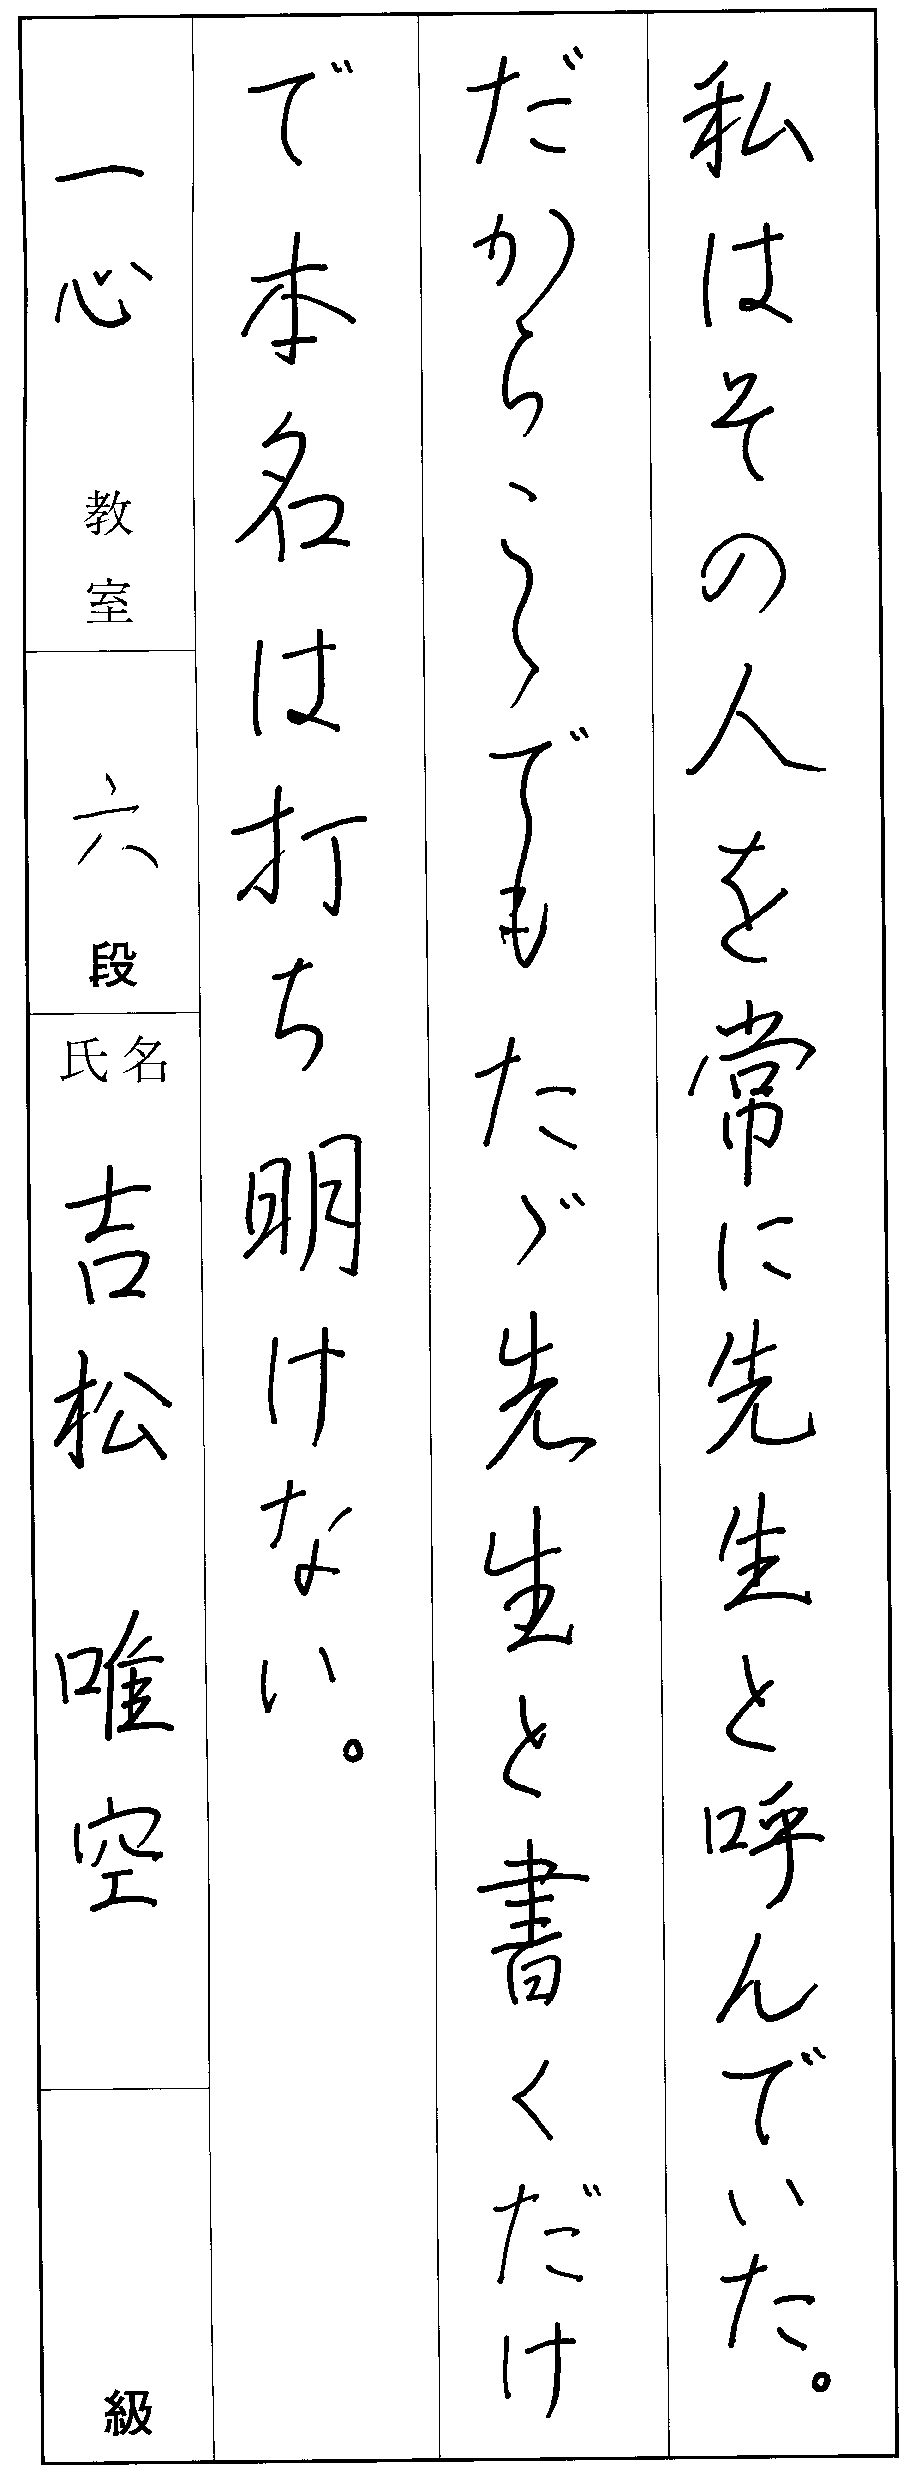 私はその人を常に先生と呼んでいた。
だからこゝでもたゞ先生と書くだけ
で本名は打ち明けない。
一心 教室
六 段
氏名 吉松 唯空
級